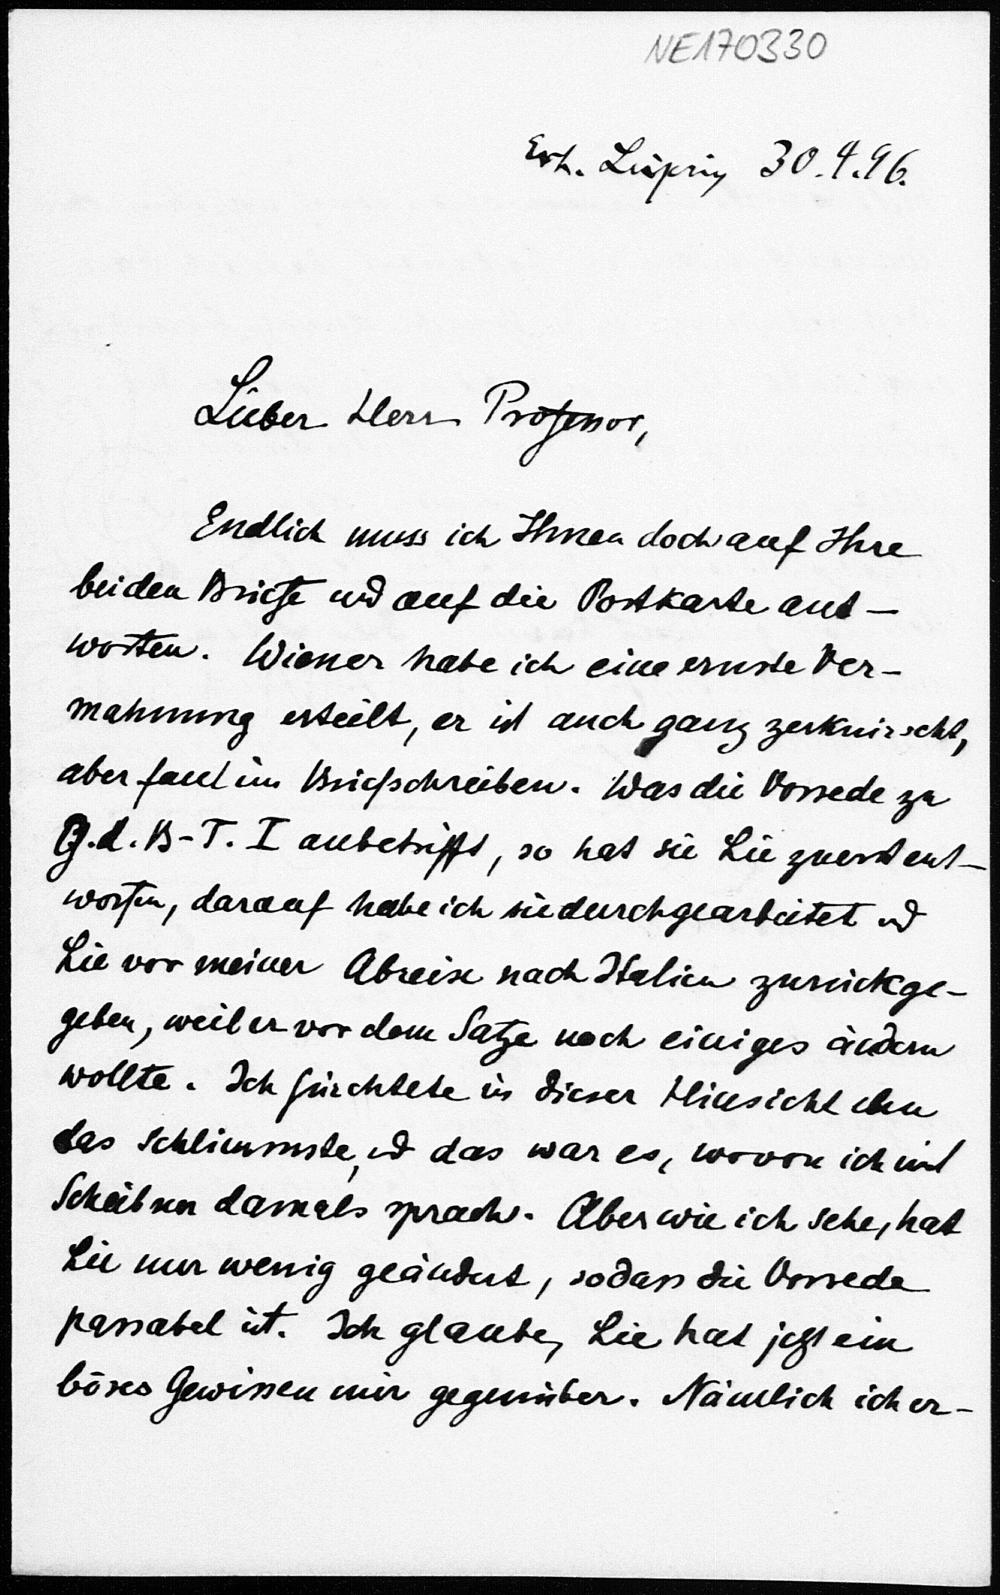 NE170330
Erh. Leipzig 30.4.96.
Lieber Herr Professor,
Endlich muss ich Ihnen doch auf Ihre
beiden Briefe und auf die Postkarte ant-
worten. Wiener habe ich eine ernste Ver-
mahnung erteilt, er ist auch ganz zerknirscht,
aber faul im Briefschreiben. Was die Vorrede zu
G.d.B-T. I anbetrifft, so hat sie Lie zuerst ent-
worfen, darauf habe ich sie durchgearbeitet und
Lie vor meiner Abreise nach Italien zurückge-
geben, weil er vor dem Satze noch einiges ändern
wollte. Ich fürchtete in dieser Hinsicht eben
das Schlimmste, und das war es, wovon ich mit
Scheibner damals sprach. Aber wie ich sehe, hat
Lie nur wenig geändert, sodass die Vorrede
passabel ist. Ich glaube, Lie hat jetzt ein
böses Gewissen mir gegenüber. Nämlich ich er-